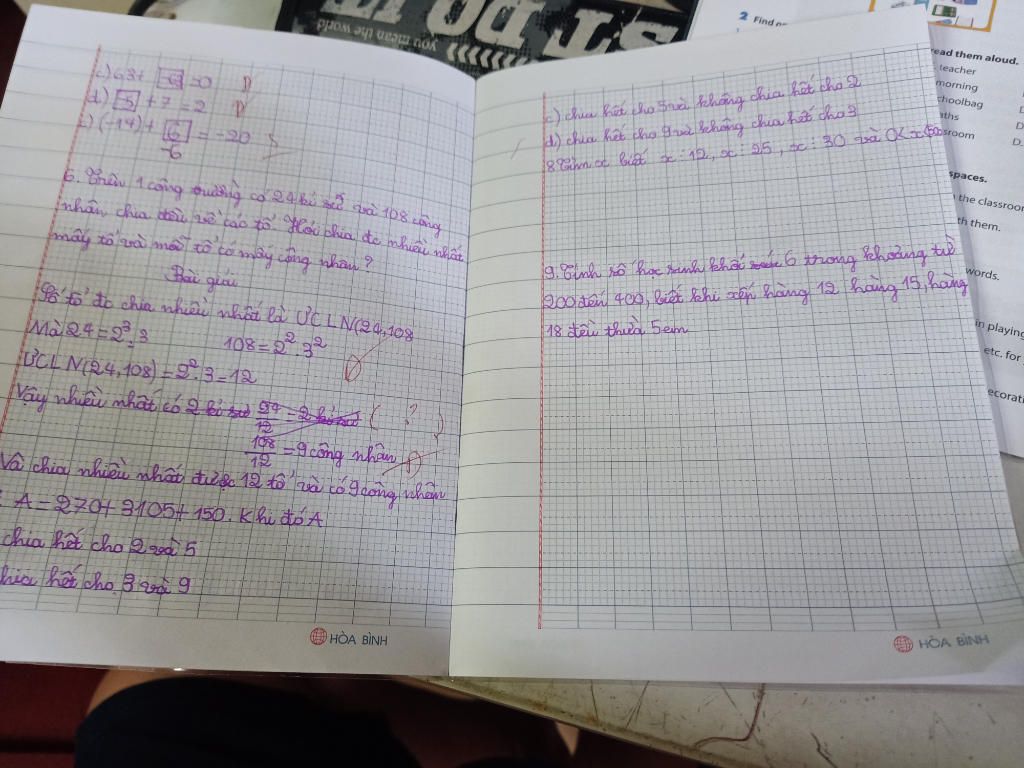 c) 63+ [-63] =0 Đ
d) [-5] + 7 = 2 Đ
(-14) + [6] = -20 S
-6
6. Trên 1 công trường có 24 kĩ sư và 108 công
nhân chia đều về các tổ. Hỏi chia đc nhiều nhất
mấy tổ và mỗi tổ có mấy công nhân?
Bài giải
Số tổ đc chia nhiều nhất là ƯCLN(24,108
Mà 24 = 2³.3 108 = 2².3²
ƯCLN(24,108) = 2².3 = 12
Vậy nhiều nhất có 2 kĩ sư 24/12 = 2 kĩ sư ( ? )
108/12 = 9 công nhân
Vậ chia nhiều nhất được 12 tổ và có 9 công nhân
A = 270 + 3105 + 150. Khi đó A
chia hết cho 2 và 5
hia hết cho 3 và 9
c) chia hết cho 5 và không chia hết cho 2
d) chia hết cho 9 và không chia hết cho 3
8 Tìm x biết x : 12, x : 25, x : 30 và 0<x<500
9. Tính số học sinh khối 6 trong khoảng từ
200 đến 400, biết khi xếp hàng 12 hàng 15, hàng
18 đều thừa 5 em
HÒA BÌNH
HÒA BÌNH
you mean the world
ST DO
2 Find
read them aloud.
teacher
morning
choolbag
ths
sroom
D.
D.
spaces.
n the classroom
th them.
words.
in playing
etc. for
ecorati